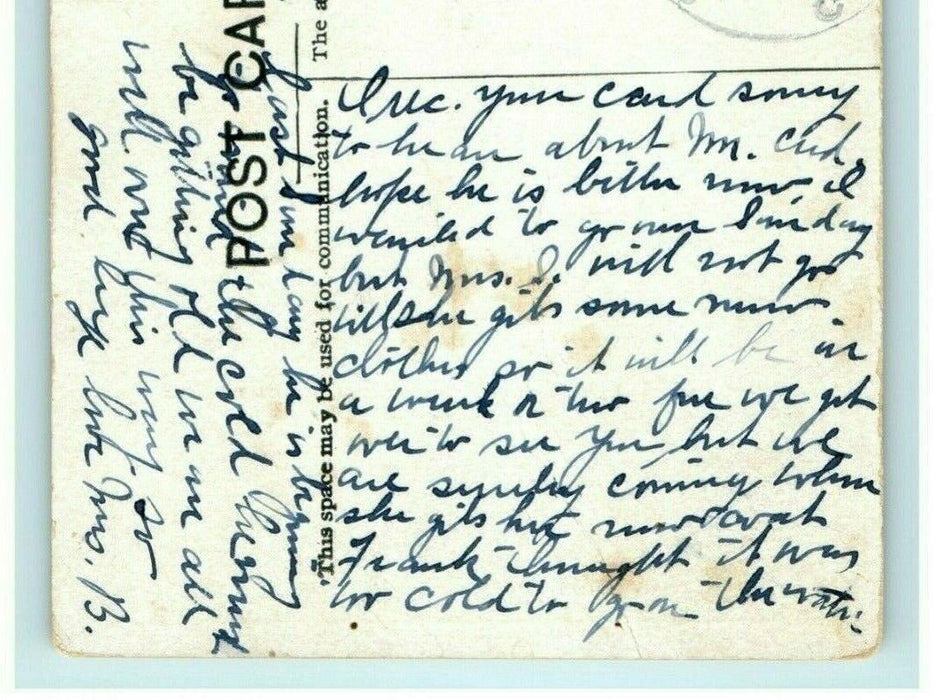 POST CAR
The a
This space may be used for communication.
I rec. your card sorry
to hear about Mr.
hope he is better now I
wanted to go over Sunday
but Mrs. S. will not go
till she gets some new
clothes so it will be in
a week or two fore we get
over to see you but we
are surely coming when
she gets her new coat
Frank thought it was
too cold to go on the water
Just some day he is
to mind the cold He must
be getting old we are all
well over this way so
good bye love Mrs. B.